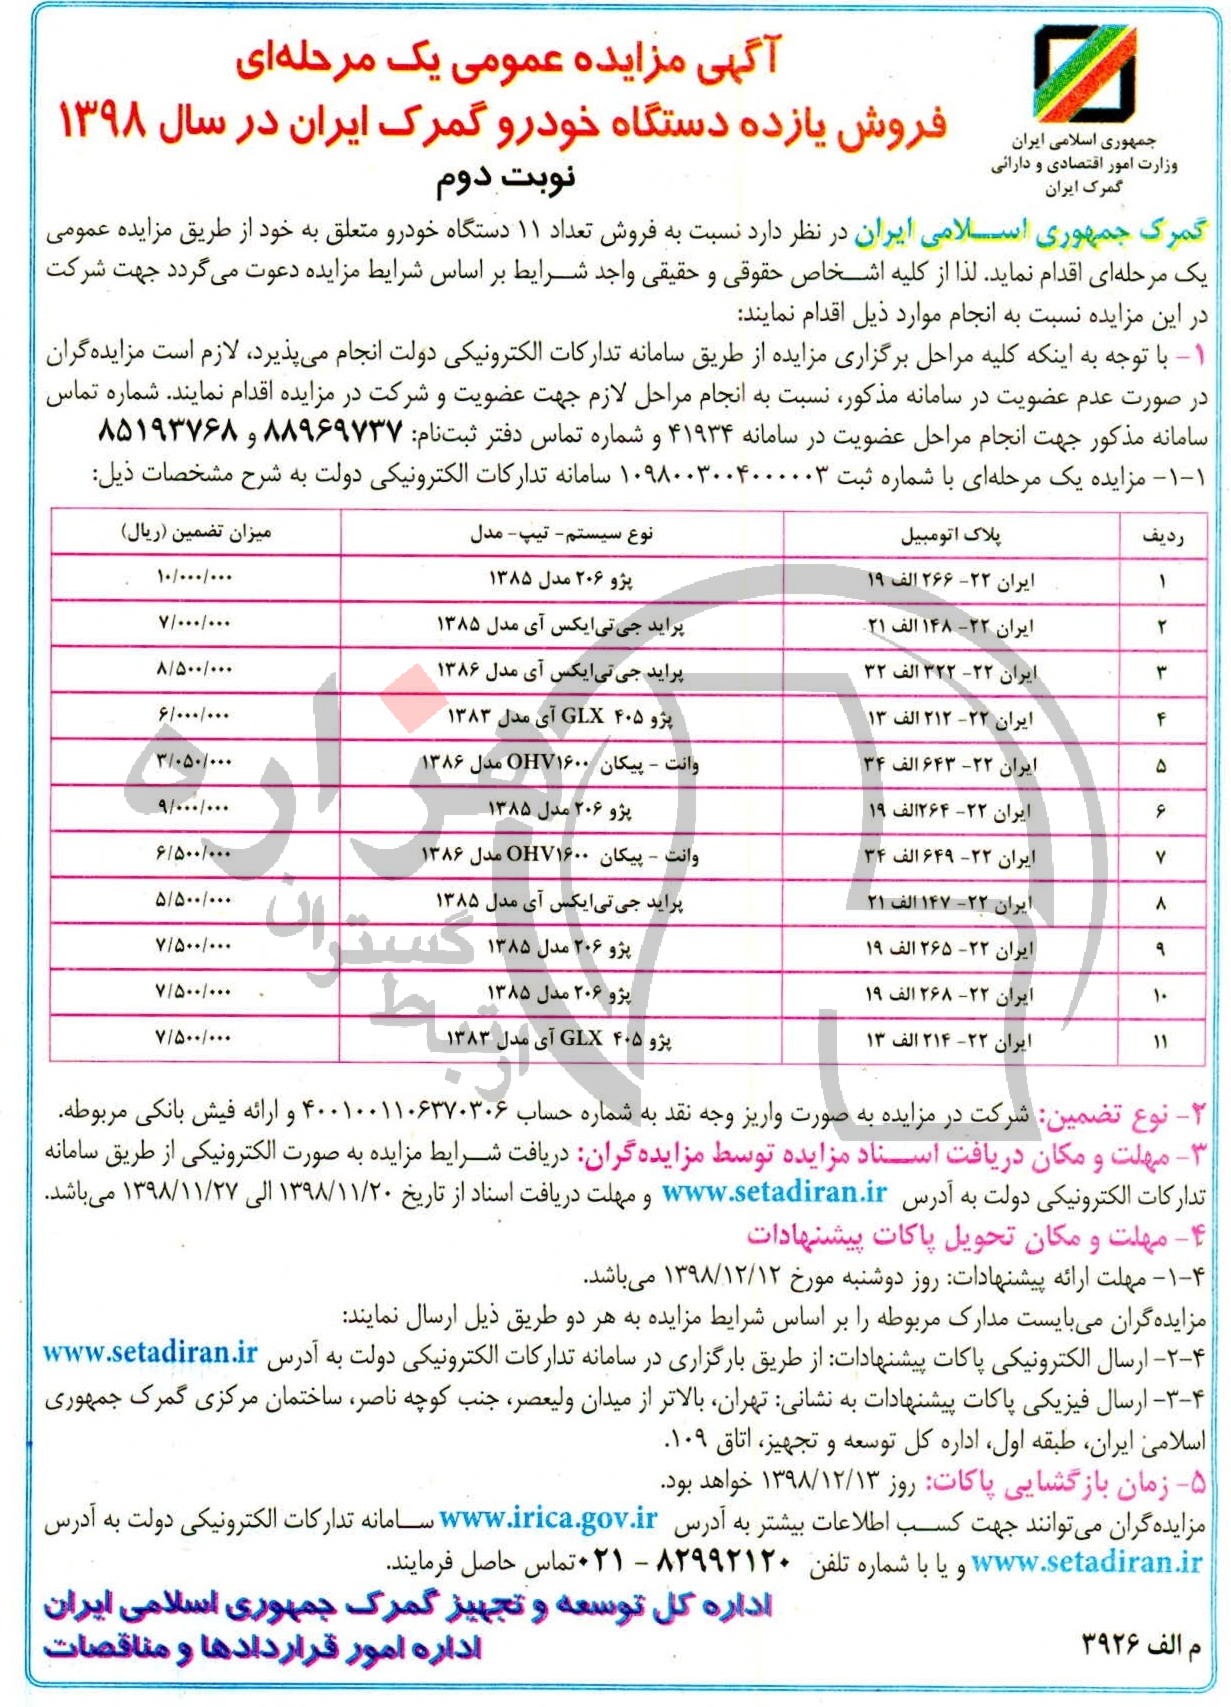 جمهوری اسلامی ایران
وزارت امور اقتصادی و دارائی
گمرک ایران
آگهی مزایده عمومی یک مرحله‌ای
فروش یازده دستگاه خودرو گمرک ایران در سال ۱۳۹۸
نوبت دوم
گمرک جمهوری اسلامی ایران در نظر دارد نسبت به فروش تعداد ۱۱ دستگاه خودرو متعلق به خود از طریق مزایده عمومی
یک مرحله‌ای اقدام نماید. لذا از کلیه اشخاص حقوقی و حقیقی واجد شرایط بر اساس شرایط مزایده دعوت می‌گردد جهت شرکت
در این مزایده نسبت به انجام موارد ذیل اقدام نمایند:
۱- با توجه به اینکه کلیه مراحل برگزاری مزایده از طریق سامانه تدارکات الکترونیکی دولت انجام می‌پذیرد، لازم است مزایده‌گران
در صورت عدم عضویت در سامانه مذکور، نسبت به انجام مراحل لازم جهت عضویت و شرکت در مزایده اقدام نمایند. شماره تماس
سامانه مذکور جهت انجام مراحل عضویت در سامانه ۴۱۹۳۴ و شماره تماس دفتر ثبت‌نام: ۸۸۹۶۹۷۳۷ و ۸۵۱۹۳۷۶۸
۱-۱- مزایده یک مرحله‌ای با شماره ثبت ۱۰۹۸۰۰۳۰۰۴۰۰۰۰۰۳ سامانه تدارکات الکترونیکی دولت به شرح مشخصات ذیل:
ردیف پلاک اتومبیل نوع سیستم- تیپ- مدل میزان تضمین (ریال)
۱ ایران ۲۲- ۲۶۶ الف ۱۹ پژو ۲۰۶ مدل ۱۳۸۵ ۱۰/۰۰۰/۰۰۰
۲ ایران ۲۲- ۱۴۸ الف ۲۱ پراید جی‌تی‌ایکس آی مدل ۱۳۸۵ ۷/۰۰۰/۰۰۰
۳ ایران ۲۲- ۳۲۲ الف ۳۲ پراید جی‌تی‌ایکس آی مدل ۱۳۸۶ ۸/۵۰۰/۰۰۰
۴ ایران ۲۲- ۲۱۲ الف ۱۳ پژو ۴۰۵ GLX آی مدل ۱۳۸۳ ۶/۰۰۰/۰۰۰
۵ ایران ۲۲- ۶۴۳ الف ۳۴ وانت - پیکان OHV۱۶۰۰ مدل ۱۳۸۶ ۳/۰۵۰/۰۰۰
۶ ایران ۲۲- ۲۶۴الف ۱۹ پژو ۲۰۶ مدل ۱۳۸۵ ۹/۰۰۰/۰۰۰
۷ ایران ۲۲- ۶۴۹ الف ۳۴ وانت - پیکان OHV۱۶۰۰ مدل ۱۳۸۶ ۶/۵۰۰/۰۰۰
۸ ایران ۲۲- ۱۴۷ الف ۲۱ پراید جی‌تی‌ایکس آی مدل ۱۳۸۵ ۵/۵۰۰/۰۰۰
۹ ایران ۲۲- ۲۶۵ الف ۱۹ پژو ۲۰۶ مدل ۱۳۸۵ ۷/۵۰۰/۰۰۰
۱۰ ایران ۲۲- ۲۶۸ الف ۱۹ پژو ۲۰۶ مدل ۱۳۸۵ ۷/۵۰۰/۰۰۰
۱۱ ایران ۲۲- ۲۱۴ الف ۱۳ پژو ۴۰۵ GLX آی مدل ۱۳۸۳ ۷/۵۰۰/۰۰۰
هزاره
گستران
ارتباط
۲- نوع تضمین: شرکت در مزایده به صورت واریز وجه نقد به شماره حساب ۴۰۰۱۰۰۱۱۰۶۳۷۰۳۰۶ و ارائه فیش بانکی مربوطه.
۳- مهلت و مکان دریافت اسناد مزایده توسط مزایده‌گران: دریافت شرایط مزایده به صورت الکترونیکی از طریق سامانه
تدارکات الکترونیکی دولت به آدرس www.setadiran.ir و مهلت دریافت اسناد از تاریخ ۱۳۹۸/۱۱/۲۰ الی ۱۳۹۸/۱۱/۲۷ می‌باشد.
۴- مهلت و مکان تحویل پاکات پیشنهادات
۴-۱- مهلت ارائه پیشنهادات: روز دوشنبه مورخ ۱۳۹۸/۱۲/۱۲ می‌باشد.
مزایده‌گران می‌بایست مدارک مربوطه را بر اساس شرایط مزایده به هر دو طریق ذیل ارسال نمایند:
۴-۲- ارسال الکترونیکی پاکات پیشنهادات: از طریق بارگزاری در سامانه تدارکات الکترونیکی دولت به آدرس www.setadiran.ir
۴-۳- ارسال فیزیکی پاکات پیشنهادات به نشانی: تهران، بالاتر از میدان ولیعصر، جنب کوچه ناصر، ساختمان مرکزی گمرک جمهوری
اسلامی ایران، طبقه اول، اداره کل توسعه و تجهیز، اتاق ۱۰۹.
۵- زمان بازگشایی پاکات: روز ۱۳۹۸/۱۲/۱۳ خواهد بود.
مزایده‌گران می‌توانند جهت کسب اطلاعات بیشتر به آدرس www.irica.gov.ir سامانه تدارکات الکترونیکی دولت به آدرس
www.setadiran.ir و یا با شماره تلفن ۸۲۹۹۲۱۲۰ - ۰۲۱ تماس حاصل فرمایند.
اداره کل توسعه و تجهیز گمرک جمهوری اسلامی ایران
اداره امور قراردادها و مناقصات
م الف ۳۹۲۶